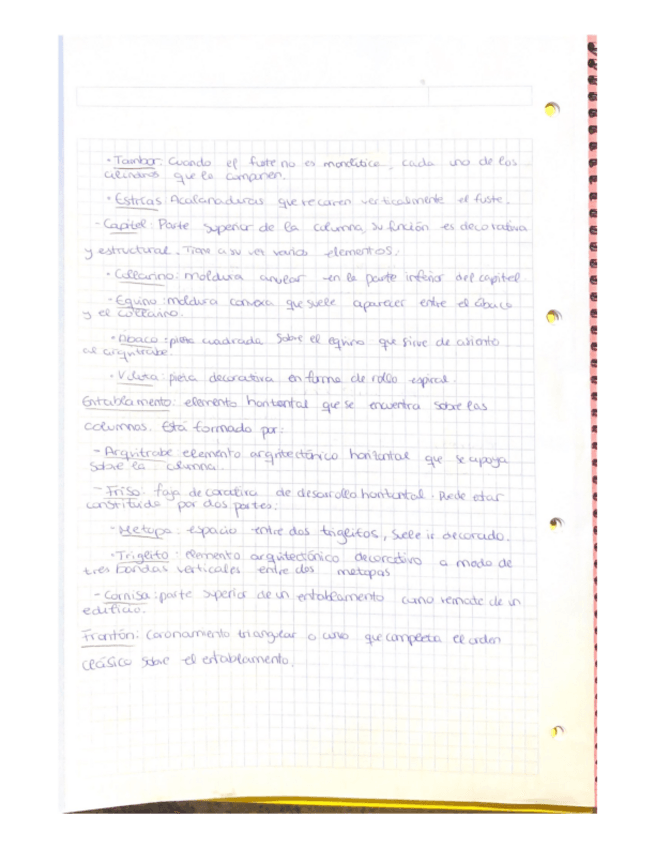 · Tambor: Cuando el fuste no es monolítico, cada uno de los
cilindros que lo componen.
· Estrías: Acalanaduras que recorren verticalmente el fuste.
- Capitel: Parte superior de la columna, su función es decorativa
y estructural. Tiene a su vez varios elementos:
· Collarino: moldura anular en la parte inferior del capitel
· Equino: moldura convexa que suele aparecer entre el ábaco
y el collarino.
· Ábaco: pieza cuadrada sobre el equino que sirve de asiento
al arquitrabe.
· Voluta: pieza decorativa en forma de rollo espiral.
Entablamento: elemento horizontal que se encuentra sobre las
columnas. Está formado por:
- Arquitrabe: elemento arquitectónico horizontal que se apoya
sobre la columna
- Friso: faja decorativa de desarrollo horizontal. Puede estar
constituida por dos partes:
· Metopa: espacio entre dos triglifos, suele ir decorado.
· Triglifo: elemento arquitectónico decorativo a modo de
tres bandas verticales entre dos metopas
- Cornisa: parte superior de un entablamento como remate de un
edificio.
Frontón: Coronamiento triangular o curvo que completa el orden
clásico sobre el entablamento.